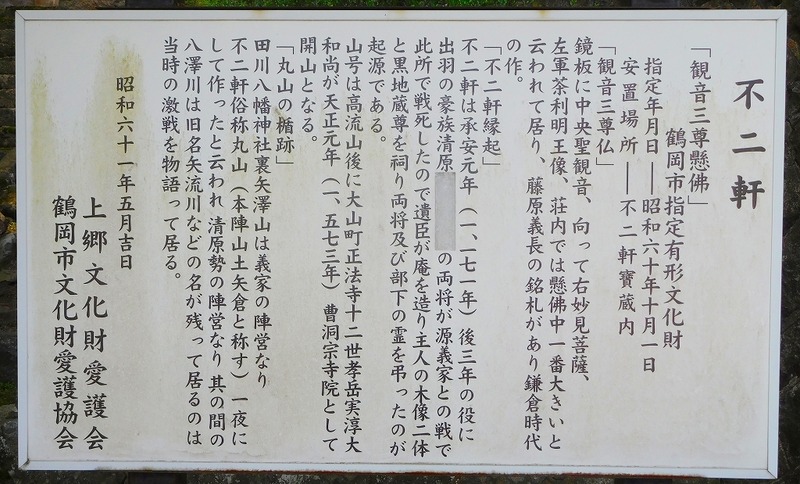 不二軒
鶴岡市指定有形文化財
「観音三尊懸佛」
指定年月日──昭和六十年十月一日
安置場所──不二軒寶蔵内
「観音三尊仏」
鏡板に中央聖観音、向って右妙見菩薩、
左軍茶利明王像、荘内では懸佛中一番大きいと
云われて居り、藤原義長の銘札があり鎌倉時代
の作。
「不二軒縁起」
不二軒は承安元年（一、一七一年）後三年の役に
出羽の豪族清原
の両将が源義家との戦で
此所で戦死したので遺臣が庵を造り主人の木像二体
と黒地蔵尊を祠り両将及び部下の霊を弔ったのが
起源である。
山号は高流山後に大山町正法寺十二世孝岳実淳大
和尚が天正元年（一、五七三年）曹洞宗寺院として
開山となる。
「丸山の楯跡」
田川八幡神社裏矢澤山は義家の陣営なり
不二軒俗称丸山（本陣山土矢倉と称す）一夜に
して作ったと云われ 清原勢の陣営なり 其の間の
八澤川は旧名矢流川などの名が残って居るのは
当時の激戦を物語って居る。
昭和六十一年五月吉日
上郷文化財愛護会
鶴岡市文化財愛護協会